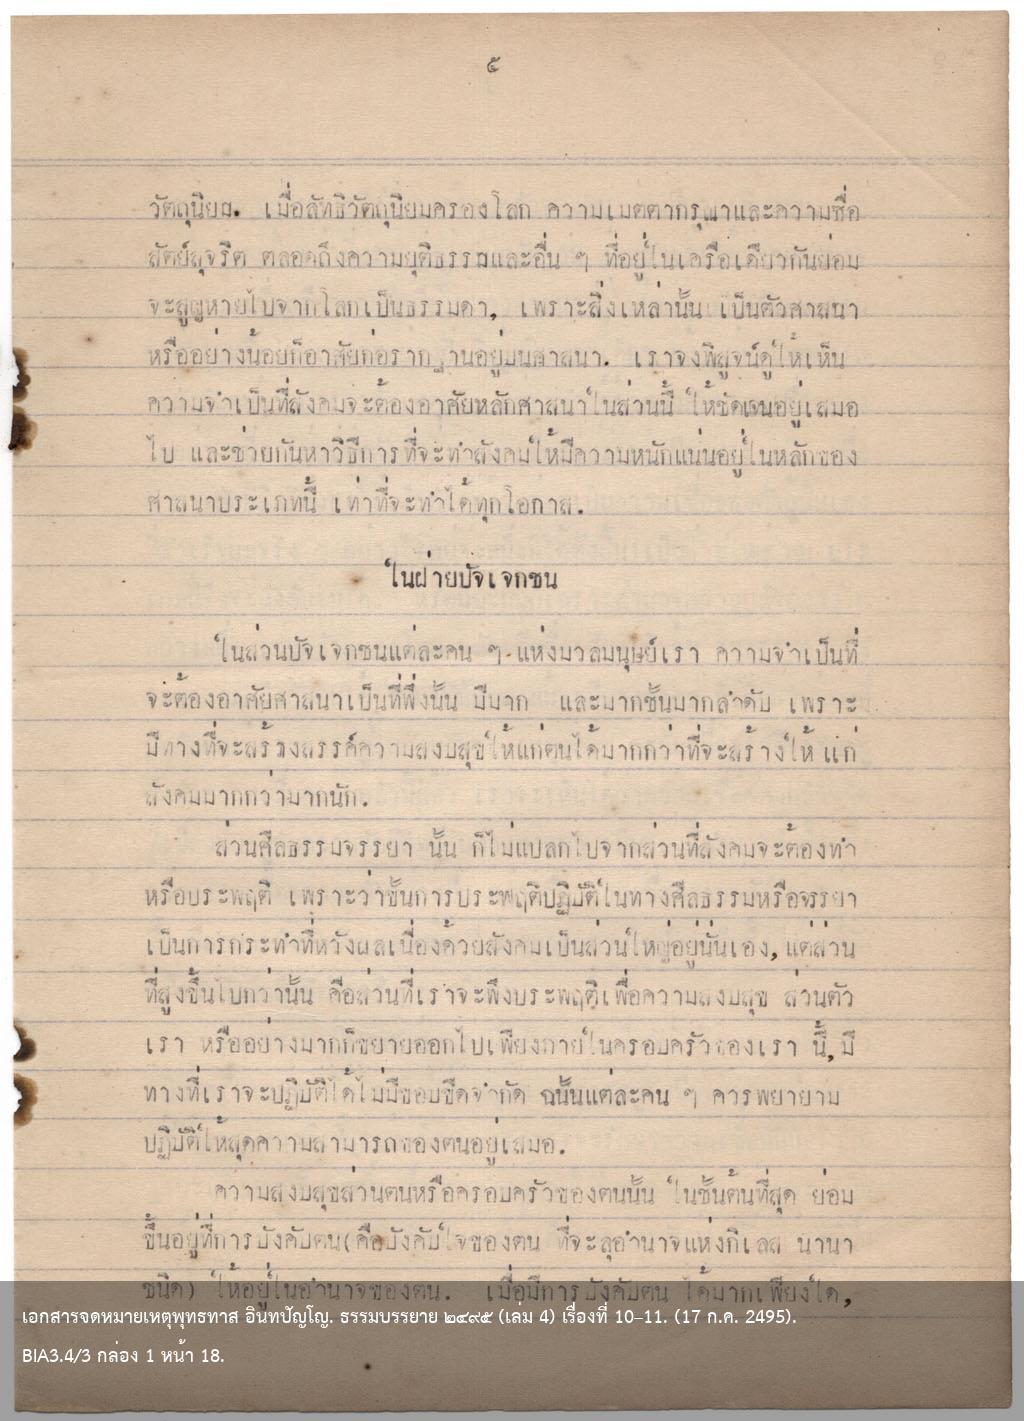 ๕
วัตถุนิยม. เมื่อลัทธิวัตถุนิยมครองโลก ความเมตตากรุณาและความซื่อ
สัตย์สุจริต ตลอดถึงความยุติธรรมและอื่น ๆ ที่อยู่ในเครือเดียวกันย่อม
จะสูญหายไปจากโลกเป็นธรรมดา, เพราะสิ่งเหล่านั้น เป็นตัวศาสนา
หรืออย่างน้อยก็อาศัยก่อรากฐานอยู่บนศาสนา. เราจงพิสูจน์ดูให้เห็น
ความจำเป็นที่สังคมจะต้องอาศัยหลักศาสนาในส่วนนี้ ให้ชัดเจนอยู่เสมอ
ไป และช่วยกันหาวิธีการที่จะทำสังคมให้มีความหนักแน่นอยู่ในหลักของ
ศาสนาประเภทนี้ เท่าที่จะทำได้ทุกโอกาส.
ในฝ่ายปัจเจกชน
ในส่วนปัจเจกชนแต่ละคน ๆ แห่งมวลมนุษย์เรา ความจำเป็นที่
จะต้องอาศัยศาสนาเป็นที่พึ่งนั้น มีมาก และมากชั้นมากลำดับ เพราะ
มีทางที่จะสร้างสรรค์ความสงบสุขให้แก่ตนได้มากกว่าที่จะสร้างให้ แก่
สังคมมากกว่ามากนัก.
ส่วนศีลธรรมจรรยา นั้น ก็ไม่แปลกไปจากส่วนที่สังคมจะต้องทำ
หรือประพฤติ เพราะว่าขั้นการประพฤติปฏิบัติในทางศีลธรรมหรือจรรยา
เป็นการกระทำที่หวังผลเนื่องด้วยสังคมเป็นส่วนใหญ่อยู่นั่นเอง, แต่ส่วน
ที่สูงขึ้นไปกว่านั้น คือส่วนที่เราจะพึงประพฤติเพื่อความสงบสุข ส่วนตัว
เรา หรืออย่างมากก็ขยายออกไปเพียงภายในครอบครัวของเรา นี้, มี
ทางที่เราจะปฏิบัติได้ไม่มีขอบขีดจำกัด ฉนั้นแต่ละคน ๆ ควรพยายาม
ปฏิบัติให้สุดความสามารถของตนอยู่เสมอ.
ความสงบสุขส่วนตนหรือครอบครัวของตนนั้น ในชั้นต้นที่สุด ย่อม
ขึ้นอยู่ที่การบังคับตน(คือบังคับใจของตน ที่จะลุอำนาจแห่งกิเลส นานา
ชนิด) ให้อยู่ในอำนาจของตน. เมื่อมีการบังคับตน ได้มากเพียงใด,
เอกสารจดหมายเหตุพุทธทาส อินทปัญโญ. ธรรมบรรยาย ๒๔๙๕ (เล่ม 4) เรื่องที่ 10–11. (17 ก.ค. 2495).
BIA3.4/3 กล่อง 1 หน้า 18.